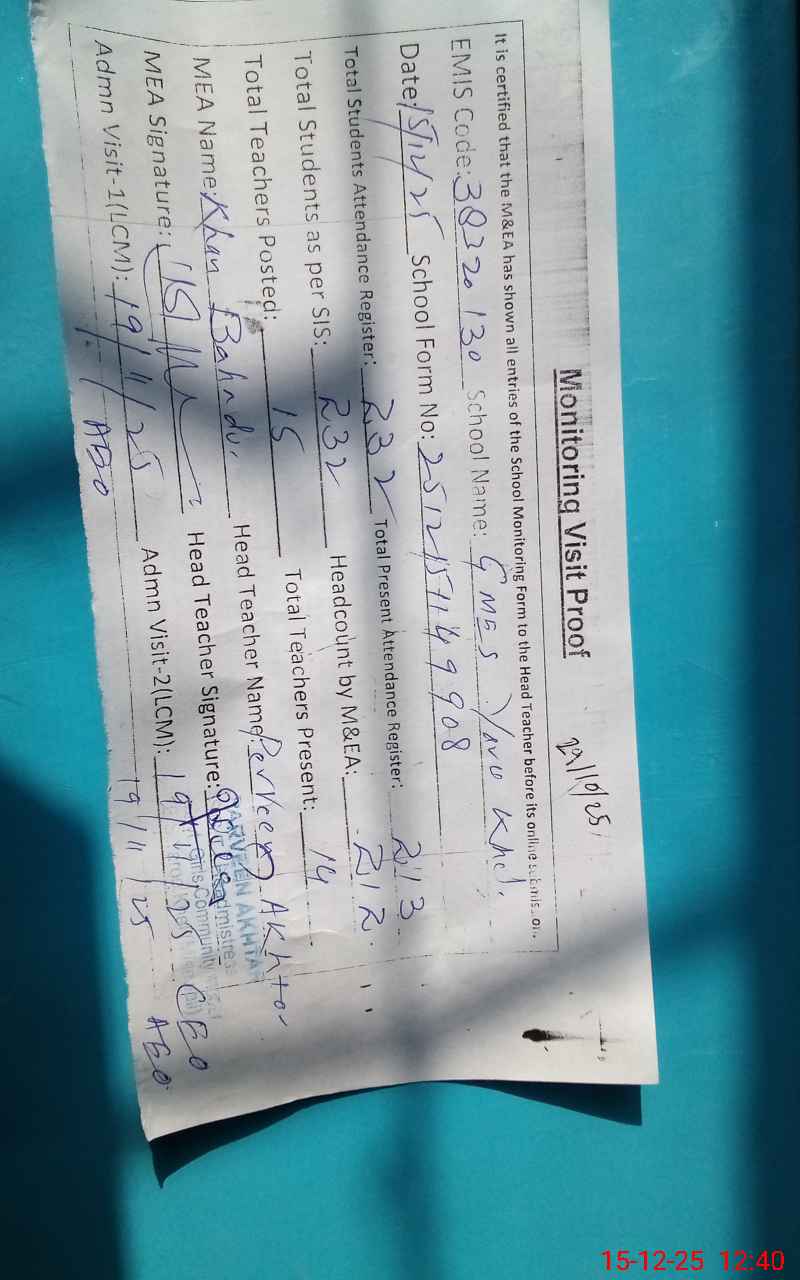 Monitoring Visit Proof 29/10/25
It is certified that the M&EA has shown all entries of the School Monitoring Form to the Head Teacher before its online submission.
EMIS Code: 38320130 School Name: GMES Yaru Khel
Date: 15/12/25 School Form No: 2512151149908
Total Students Attendance Register: 232 Total Present Attendance Register: 213
Total Students as per SIS: 232 Headcount by M&EA: 212
Total Teachers Posted: 15 Total Teachers Present: 14
MEA Name: Khan Bahadur Head Teacher Name: Perveen Akhtar
MEA Signature: Head Teacher Signature:
PARVEEN AKHTAR
Admn Visit-1(LCM): 19/11/25 Admn Visit-2(LCM): 19/11/25
ABO 19/11/25 ABO
15-12-25 12:40